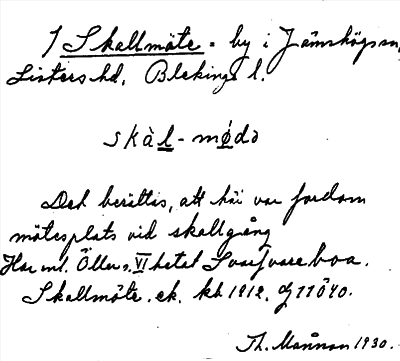 1 Skallmöte = by i Jämshögs sn,
Listers hd, Blekinge l.
skàl - mødə
Det berättas, att här var fordom
mötesplats vid skallgång
Har enl. Öller, VI hetat Svartvareboa.
Skallmöte. ek. kb 1912. g 1 1 ö 40.
Th. Månsson 1930.